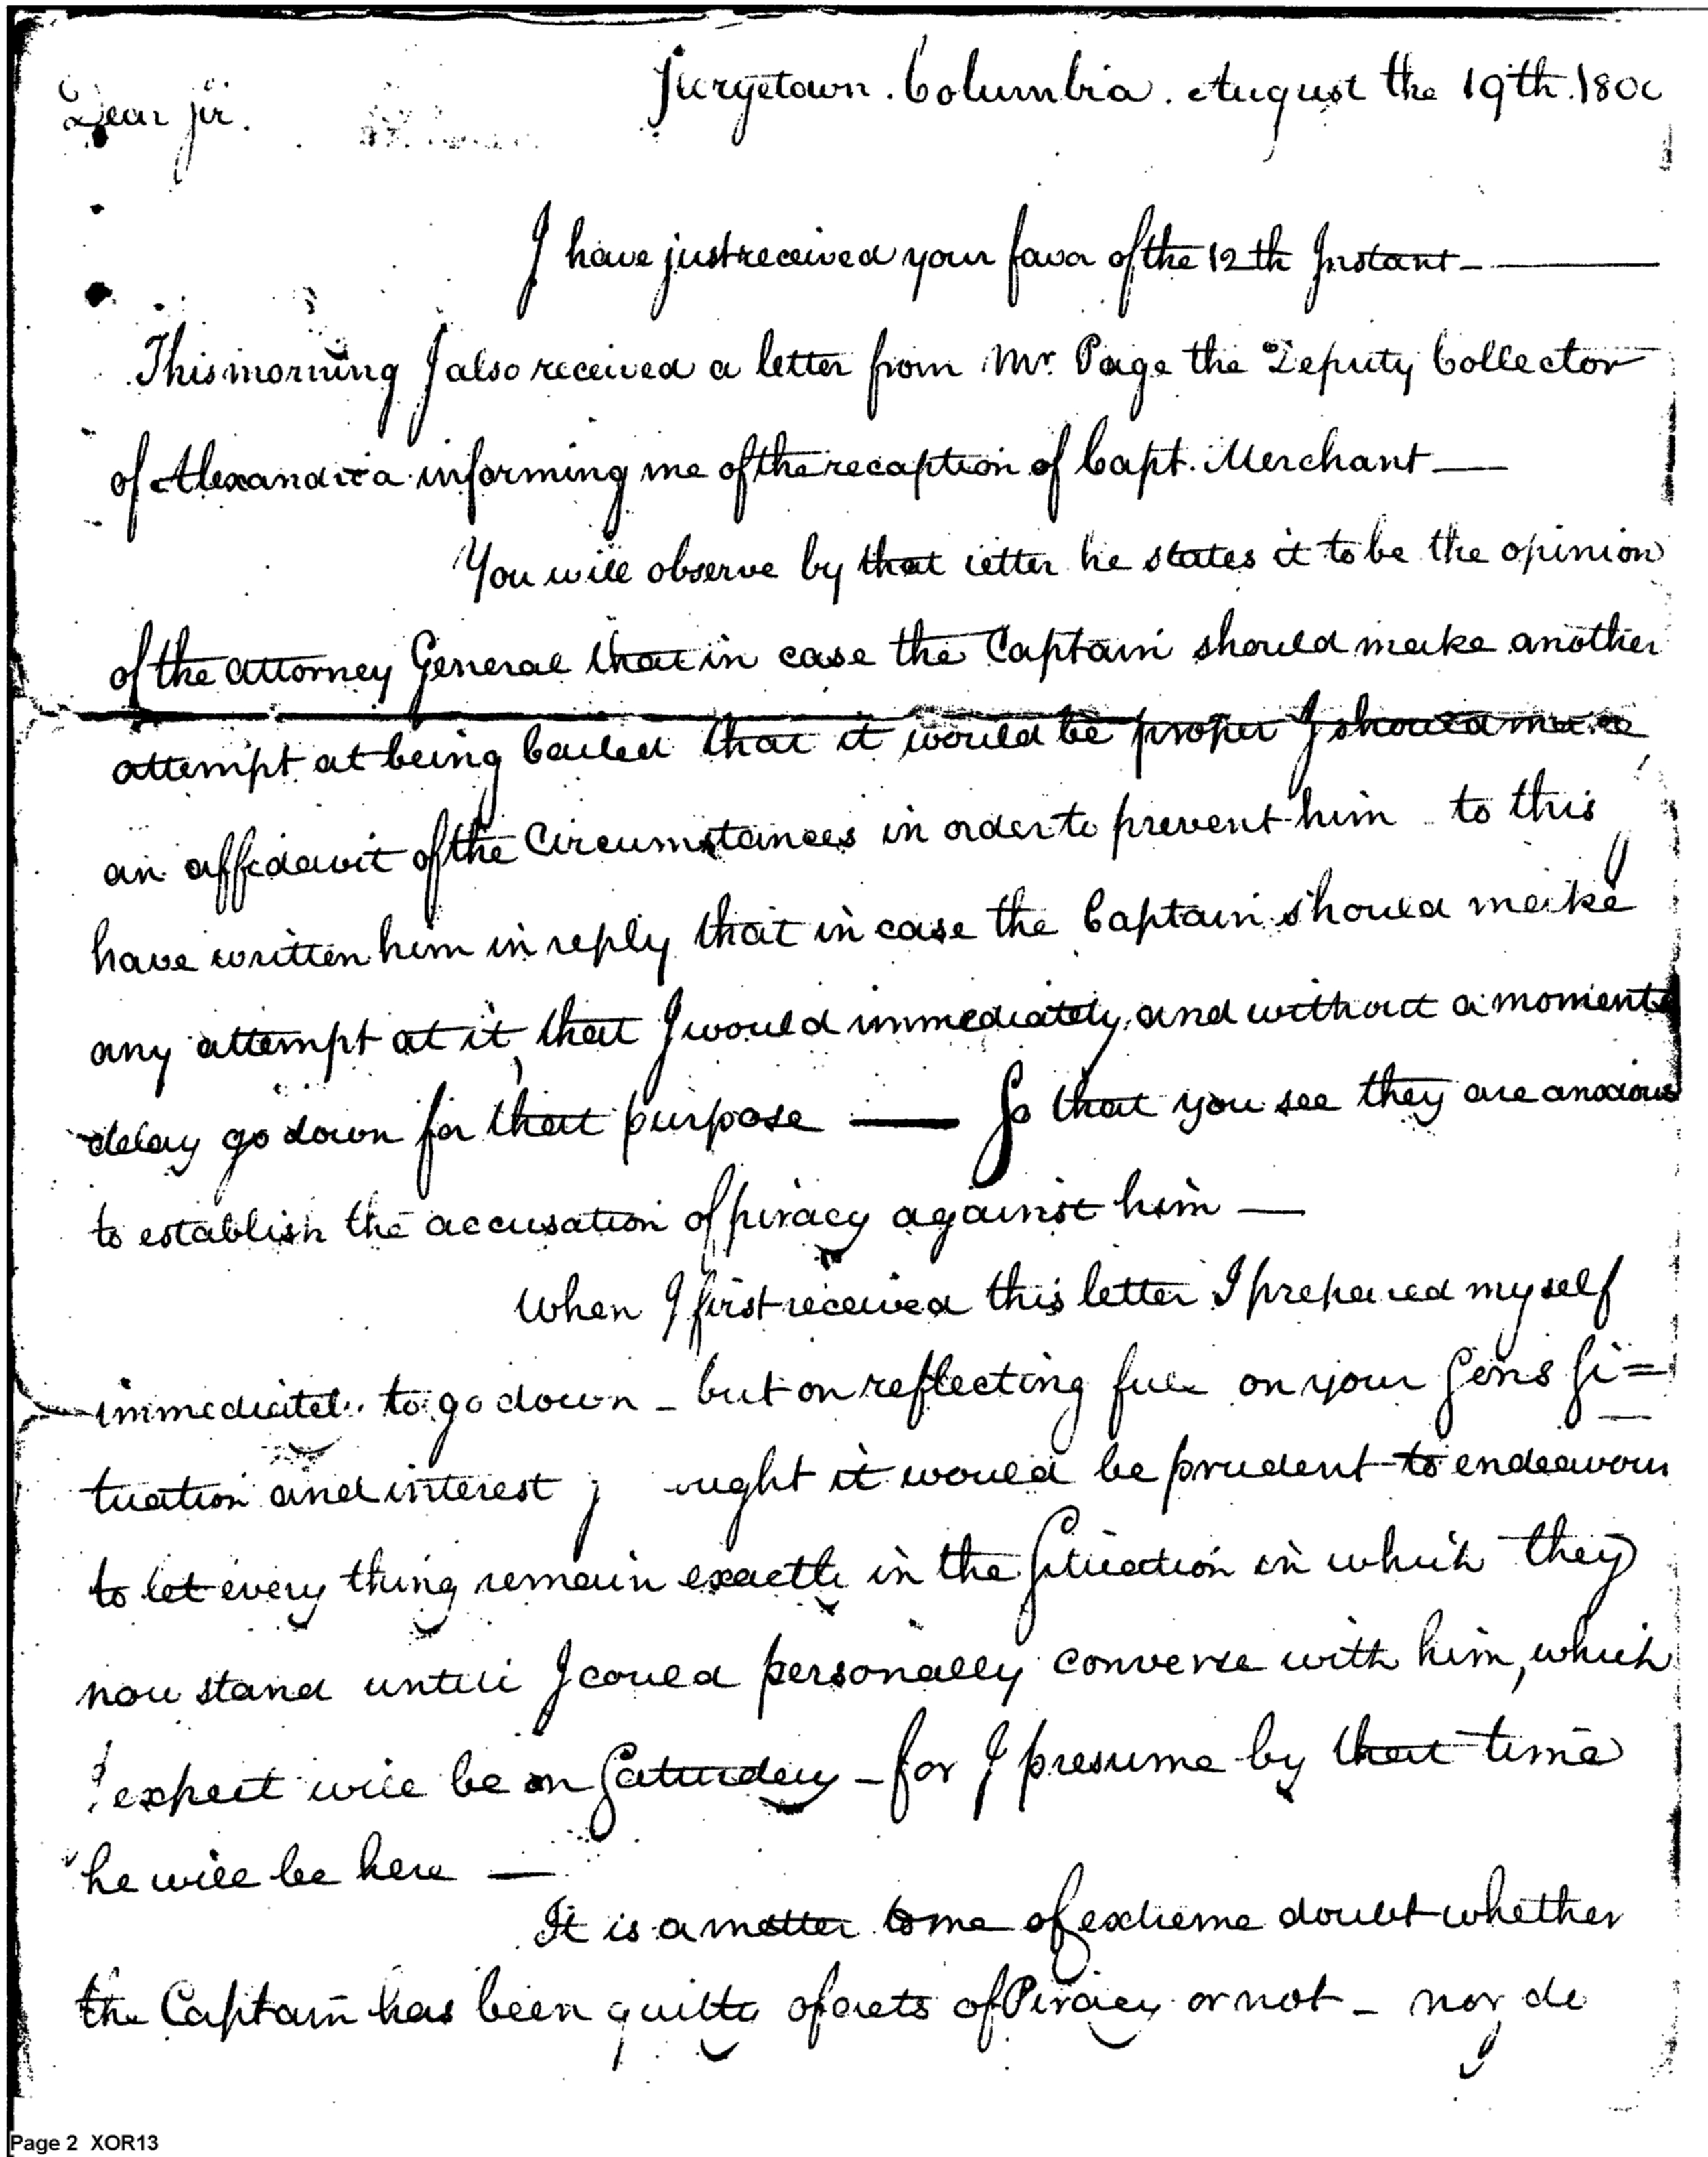 Jurgetown. Columbia. August the 19th. 180
Dear Sir.
I have just received your favor of the 12th Instant - ——
This morning I also received a letter from Mr. Page the Deputy Collector
of Alexandria informing me of the recaption of Capt. Merchant —
You will observe by that letter he states it to be the opinion
of the Attorney General that in case the Captain should make another
attempt at being bailed that it would be proper I should make
an affidavit of the Circumstances in order to prevent him - to this I
have written him in reply that in case the Captain should make
any attempt at it, that I would immediately, and without a moments
delay go down for that purpose —— So that you see they are anxious
to establish the accusation of piracy against him —
When I first received this letter I prepared myself
immediately to go down - but on reflecting full on your Sons Si=
tuation and interest ; ought it would be prudent to endeavour
to let every thing remain exactly in the Situation in which they
now stand until I could personally converse with him, which
I expect will be on Saturday - for I presume by that time
he will be here —
It is a matter to me of extreme doubt whether
the Captain has been guilty of acts of Piracy or not - nor do
Page 2 XOR13